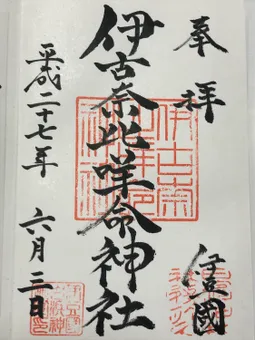 奉拝
伊豆國
伊古奈比咩命神社
平成二十七年 六月三日